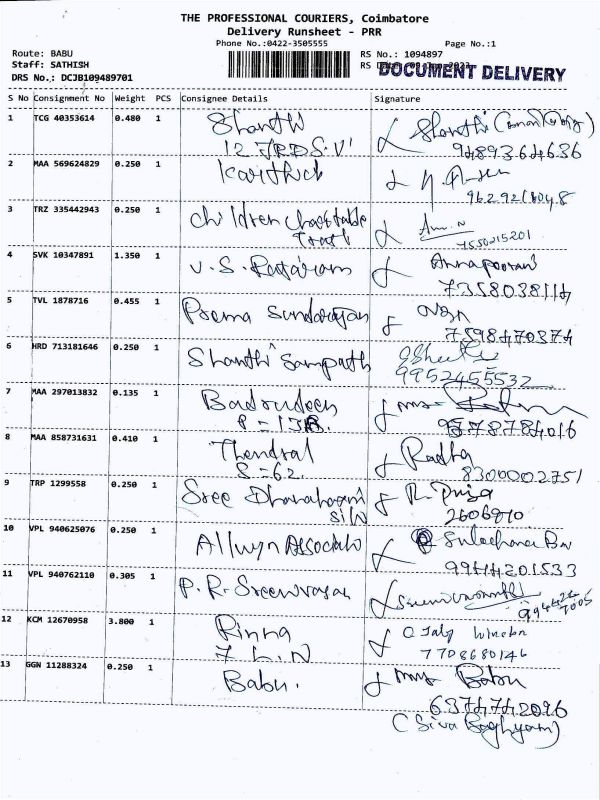 THE PROFESSIONAL COURIERS, Coimbatore
Delivery Runsheet - PRR
Phone No.:0422-3505555
Page No.:1
Route: BABU
Staff: SATHISH
DRS No.: DCJB109489701
RS No.: 1094897
RS
DOCUMENT DELIVERY
S No Consignment No Weight PCS Consignee Details Signature
1 TCG 40353614 0.480 1 Shanthi Shanthi
9489364636
2 MAA 569624829 0.250 1 Karthick
3 TRZ 335442943 0.250 1 Children Charitable
Trust
7550215201
4 SVK 10347891 1.350 1 V.S. Rajaram Annapoorani
7358038114
5 TVL 1878716 0.455 1 Prema Sundarajan
7598470374
6 HRD 713181646 0.250 1 Shanthi Sampath
9952455532
7 MAA 297013832 0.135 1
8 MAA 858731631 0.410 1 Thendral Radha
S=62 8300002751
9 TRP 1299558 0.250 1 Sree R. Priya
10 VPL 940625076 0.250 1 Allwyn Associate Sulochana
9944201533
11 VPL 940762110 0.305 1 P.R. Sreenivasan
12 KCM 12670958 3.800 1
7708680146
13 GGN 11288324 0.250 1 Babu. Babu
6374742096